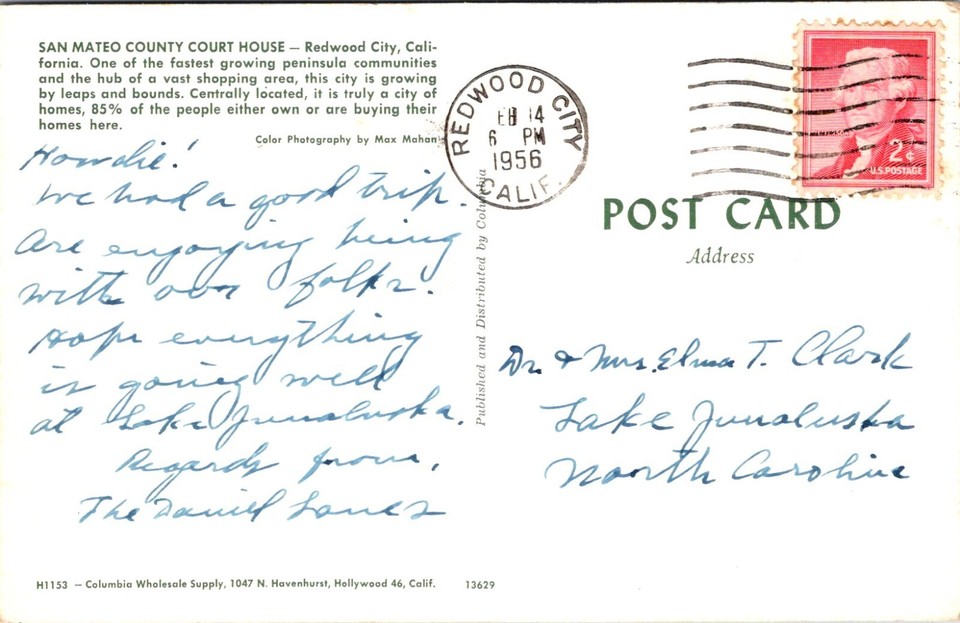 SAN MATEO COUNTY COURT HOUSE — Redwood City, Cali-
fornia. One of the fastest growing peninsula communities
and the hub of a vast shopping area, this city is growing
by leaps and bounds. Centrally located, it is truly a city of
homes, 85% of the people either own or are buying their
homes here.
Color Photography by Max Mahan
Howdie!
We had a good trip.
Are enjoying being
with our folks.
Hope everything
is going well
at Lake Junaluska.
Regards from,
The Daniel Lanes
H1153 — Columbia Wholesale Supply, 1047 N. Havenhurst, Hollywood 46, Calif. 13629
Published and Distributed by Columbia
REDWOOD CITY
EB 14
6 PM
1956
CALIF.
2¢
U.S. POSTAGE
POST CARD
Address
Dr. & Mrs. Elmer T. Clark
Lake Junaluska
North Carolina